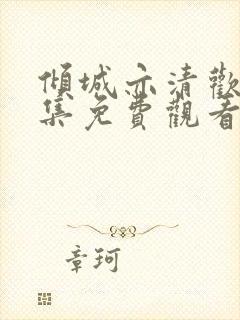 傾城亦清歡
集免費觀看
章珂